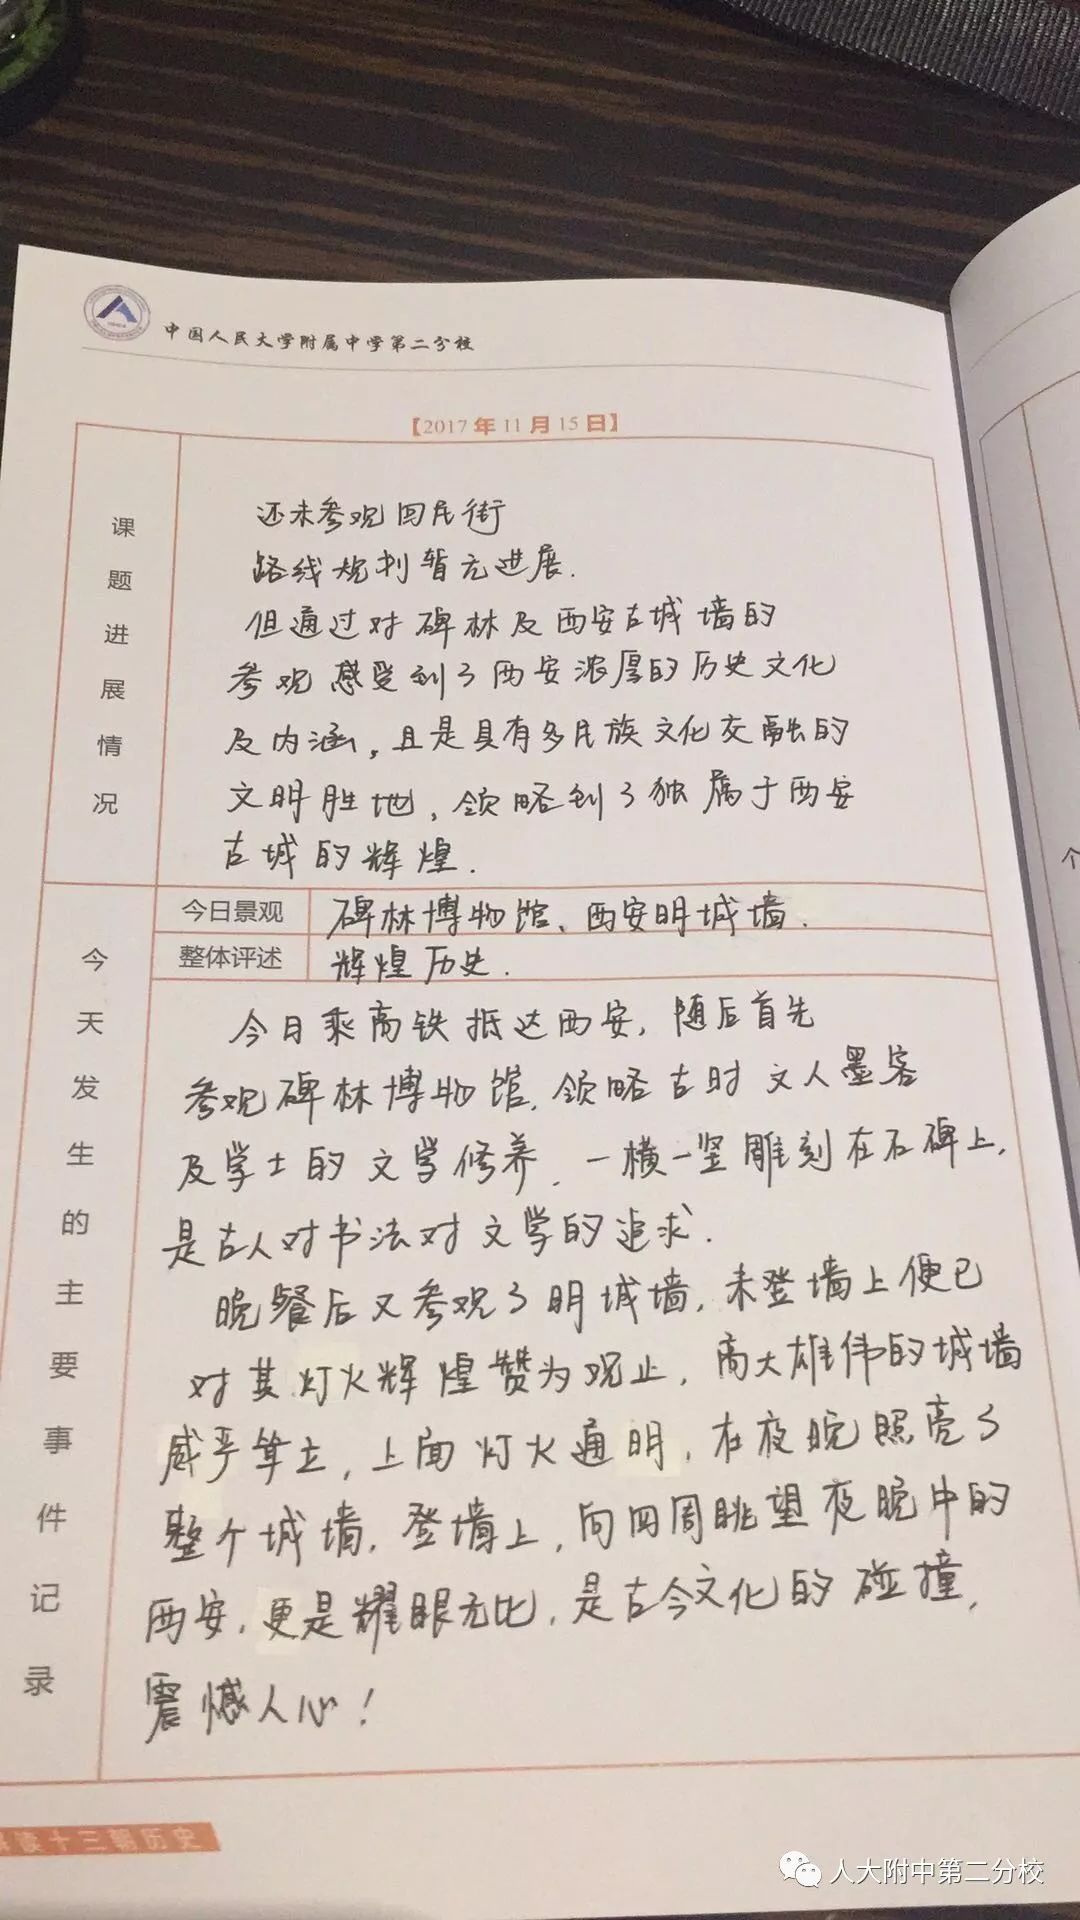 中国人民大学附属中学第二分校
【2017年11月15日】
课题进展情况
还未参观回民街
路线规划暂无进展.
但通过对碑林及西安古城墙的
参观感受到了西安浓厚的历史文化
及内涵,且是具有多民族文化交融的
文明胜地,领略到了独属于西安
古城的辉煌.
今日景观
碑林博物馆、西安明城墙.
整体评述
辉煌历史.
今天发生的主要事件记录
今日乘高铁抵达西安,随后首先
参观碑林博物馆,领略古时文人墨客
及学士的文学修养.一横一竖雕刻在石碑上,
是古人对书法对文学的追求.
晚餐后又参观了明城墙,未登墙上便已
对其灯火辉煌赞为观止,高大雄伟的城墙
威严耸立,上面灯火通明,在夜晚照亮了
整个城墙.登墙上,向四周眺望夜晚中的
西安,更是耀眼无比,是古今文化的碰撞,
震憾人心!
读十三朝历史
个
人大附中第二分校